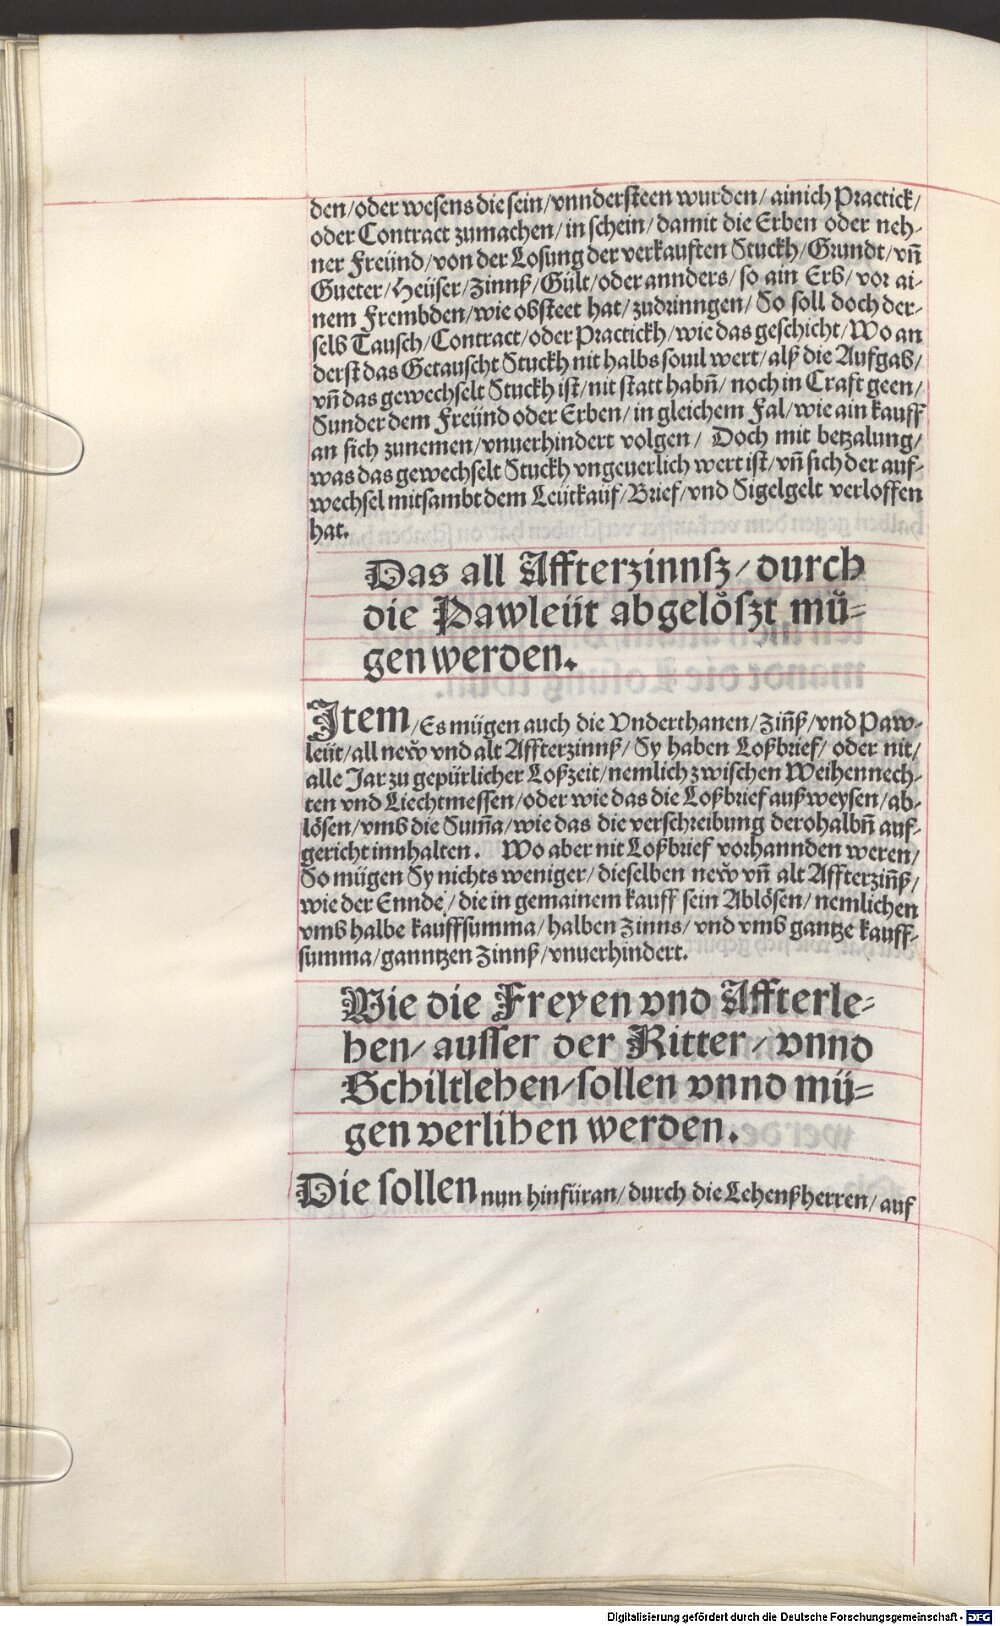 den/oder wesens die sein/vnndersteen wurden/ ainich Practick/
oder Contract zumachen/ in schein/ damit die Erben oder neh-
ner Freünd/von der Losung der verkauften Stuckh/Grundt/vn̄
Gueter/Heüser/Zinnß/Gült/oder annders/ so ain Erb/ vor ai-
nem Frembden/wie obsteet hat/ zudrinngen/ So soll doch der-
selb Tausch/Contract/oder Practickh/wie das geschicht/Wo an
derst das Getauscht Stuckh nit halbs souil wert/alß die Aufgab/
vn̄ das gewechselt Stuckh ist/nit statt habn̄/ noch in Craft geen/
Sunder dem Freünd oder Erben/in gleichem Fal/wie ain kauff
an sich zunemen/vnuerhindert volgen/ Doch mit betzalung/
was das gewechselt Stuckh vngeuerlich wert ist/vn̄ sich der auf-
wechsel mitsambt dem Leütkaüf/Brief/vnd Sigelgelt verloffen
hat.
Das all Affterzinnsz/durch
die Pawleüt abgelöszt mü-
gen werden.
Item/Es mügen auch die Vnderthanen/Zin̄ß/vnd Paw-
leüt/all new̆ vnd alt Affterzinnß/Sy haben Loßbrief/ oder nit/
alle Jar zu gepürlicher Loßzeit/nemlich zwischen Weihennech-
ten vnd Liechtmessen/oder wie das die Loßbrief außweysen/ab-
lösen/vmb die Sum̄a/wie das die verschreibung derohalbn̄ auf-
gericht innhalten. Wo aber nit Loßbrief vorhannden weren/
So mügen Sy nichts weniger/dieselben new̆ vn̄ alt Affterzin̄ß/
wie der Ennde/die in gemainem kauff sein Ablösen/nemlichen
vmb halbe kauffsumma/halben Zinns/vnd vmb gantze kauff-
summa/ganntzen Zinnß/vnuerhindert.
Wie die Freyen vnd Affterle-
hen/ausser der Ritter/vnnd
Schiltlehen/sollen vnnd mü-
gen verlihen werden.
Die sollen nun hinfüran/durch die Lehenßherren/auf
Digitalisierung gefördert durch die Deutsche Forschungsgemeinschaft - DFG